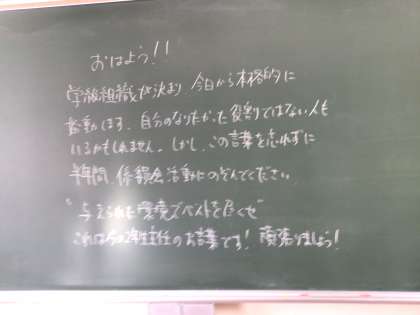 おはよう!!
学級組織が決まり、今日から本格的に
始動します。自分のなりたかった役割ではない人も
いるかもしれません。しかし、この言葉を忘れずに
半年間、係・委員会活動にのぞんでください。
"与えられた環境でベストを尽くせ"
これは の学年主任のお言葉です! 頑張りましょう!